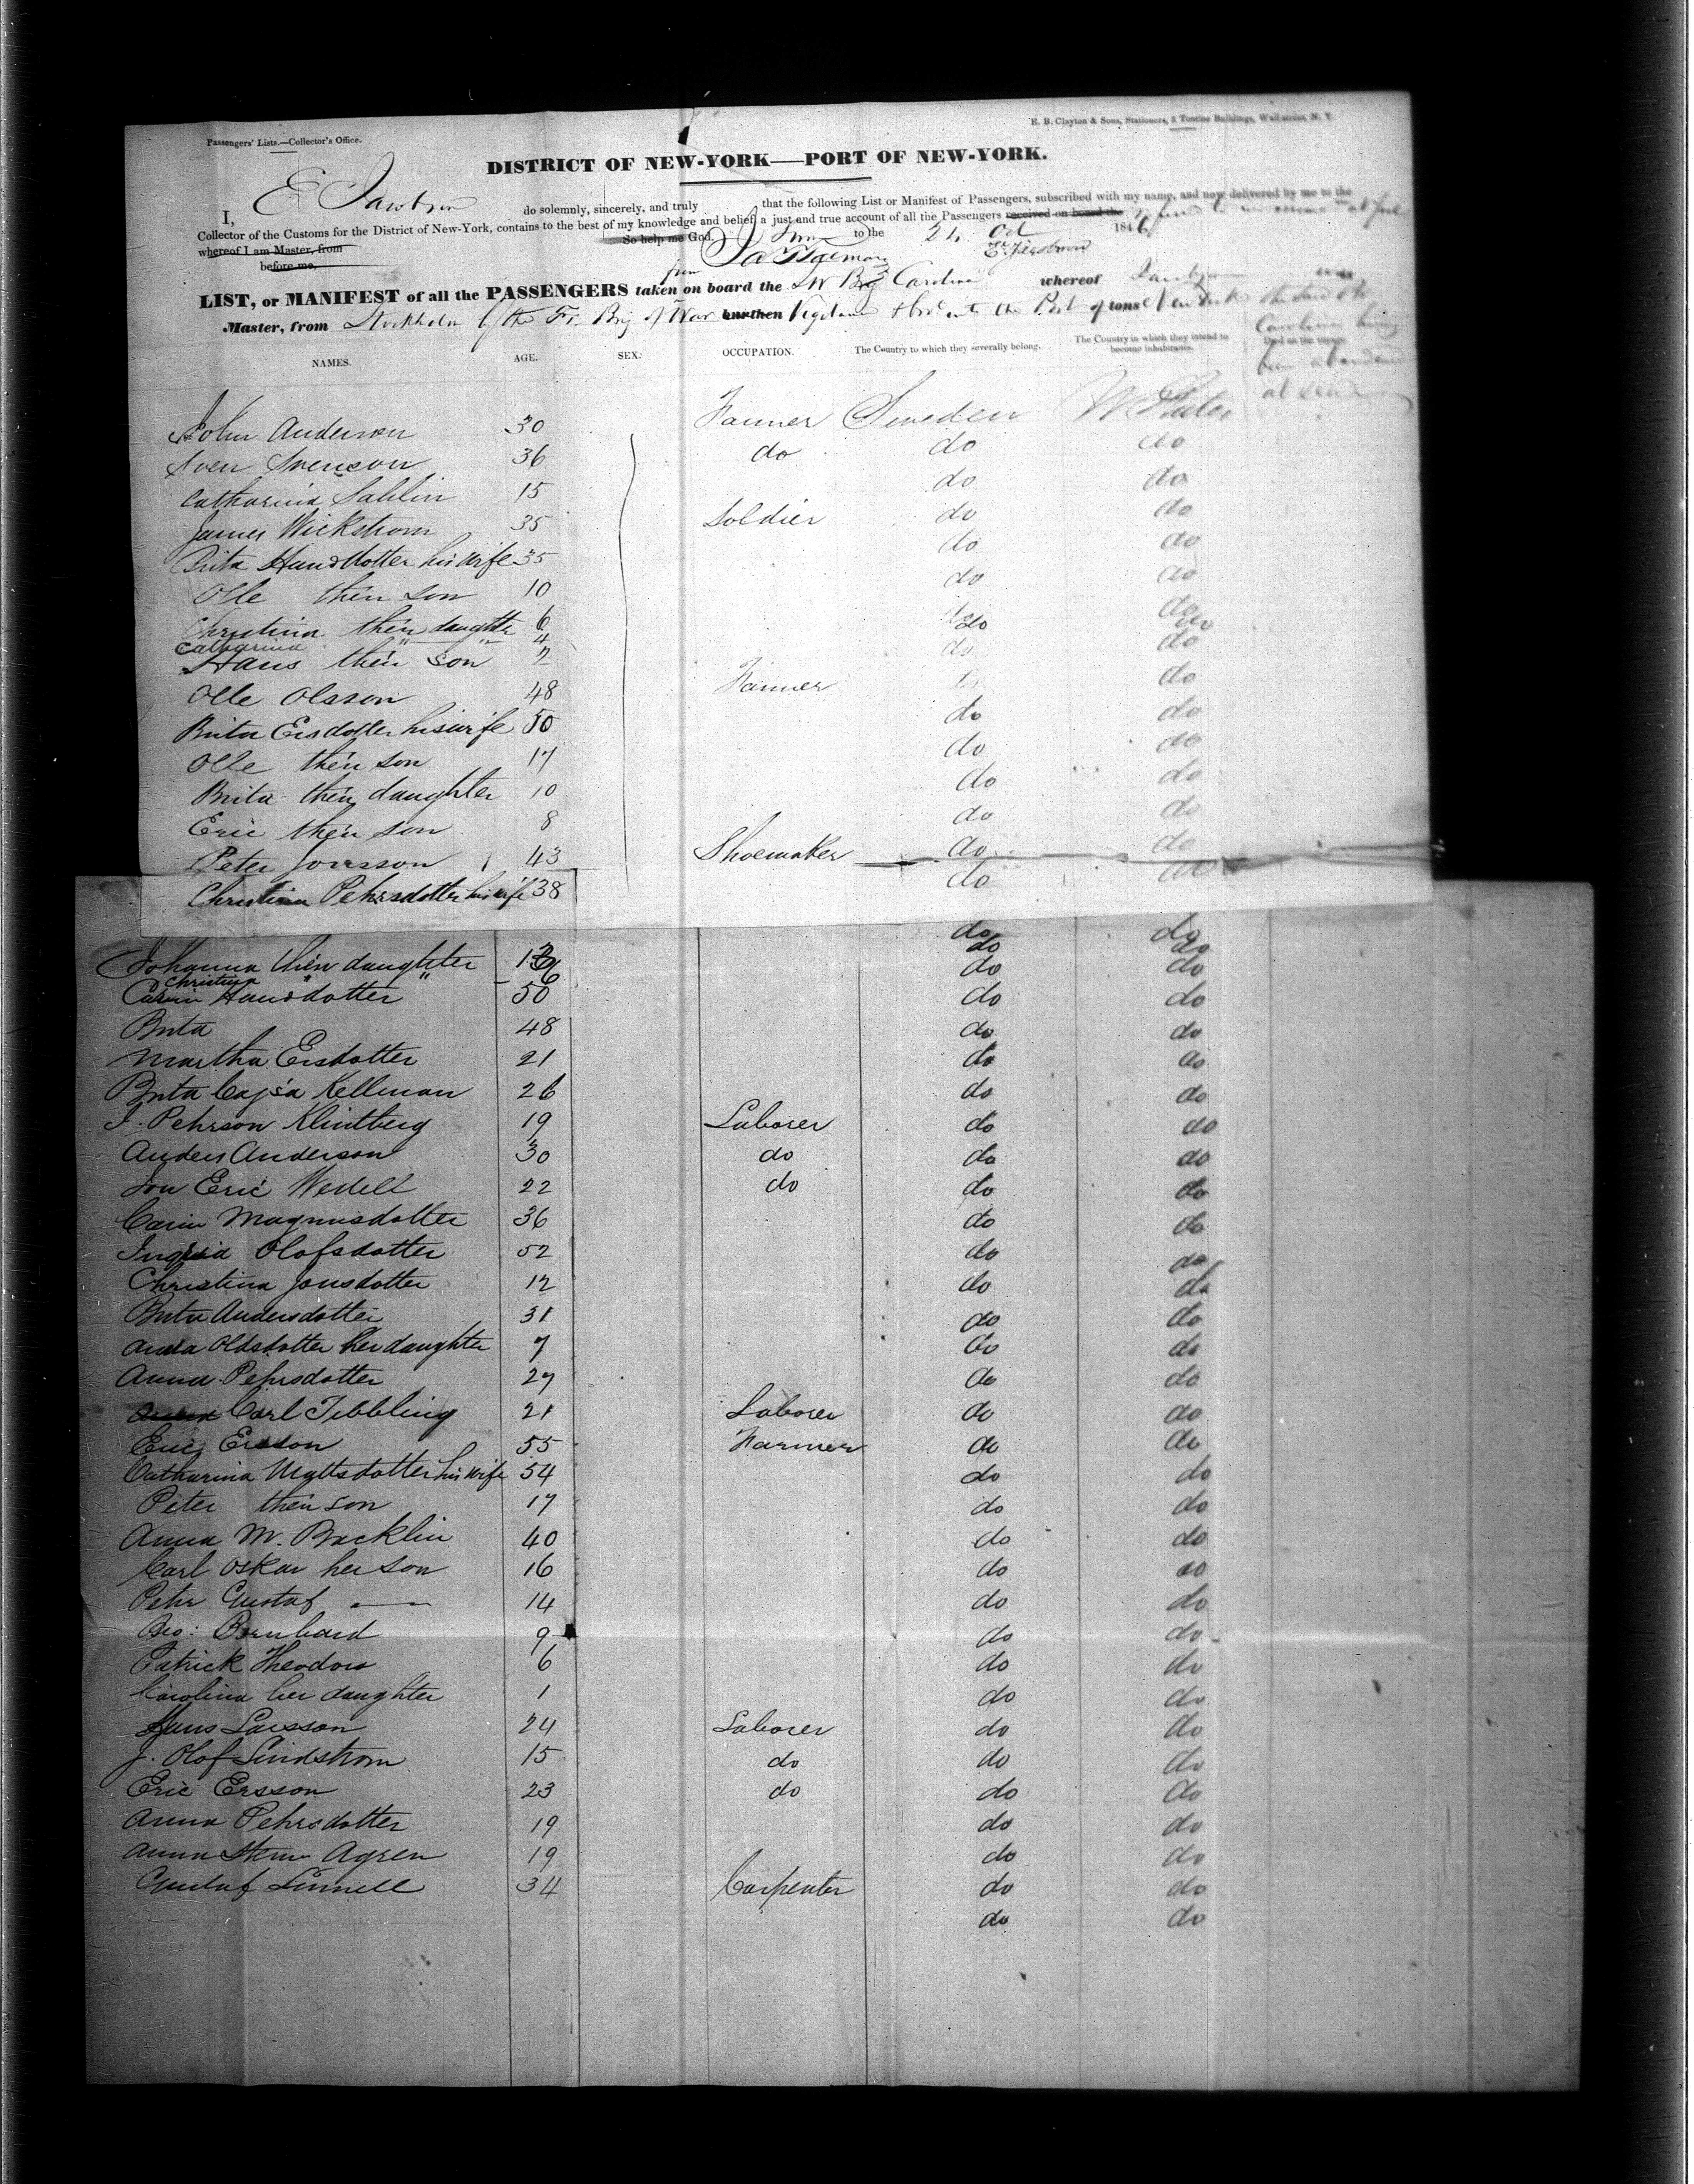 Passengers' Lists.—Collector's Office.
E. B. Clayton & Sons, Stationers, 8 Tontine Buildings, Wall-street, N. Y.
DISTRICT OF NEW-YORK—PORT OF NEW-YORK.
I, E Jacobson do solemnly, sincerely, and truly that the following List or Manifest of Passengers, subscribed with my name, and now delivered by me to the
Collector of the Customs for the District of New-York, contains to the best of my knowledge and belief, a just and true account of all the Passengers received on board the
whereof I am Master, from So help me God. to the 24 Oct 1846
before me,
LIST, or MANIFEST of all the PASSENGERS taken from on board the Sw Brig Carolina whereof was
Master, from Stockholm by the Fr. Brig of War burthen the Port of tons New York
Carolina having
been abandoned
at sea
NAMES. AGE. SEX. OCCUPATION. The Country to which they severally belong. The Country in which they intend to become inhabitants. Died on the voyage.
John Anderson 30 Farmer Sweden U States
Sven Svenson 36 do do do
Catharina Sahlin 15 do do
James Wickstrom 35 Soldier do do
Brita Handdotter his wife 35 do do
Olle their son 10 do do
Christina their daughter 6 do do
Catharina " " 4 do do
Hans their son 2 do do
Olle Olsson 48 Farmer do
Brita Ersdotter his wife 50 do do
Olle their son 17 do do
Brita their daughter 10 do do
Eric their son 8 do do
Peter Jonsson 43 Shoemaker do do
Christina Pehrsdotter his wife 38 do do
Johanna their daughter 13 do do
Christina " " 6 do do
Carin Hansdotter 50 do do
Brita 48 do do
Martha Ersdotter 21 do do
Brita Cajsa Kellman 26 do do
J. Pehrson Klintberg 19 Laborer do do
Anders Anderson 30 do do do
Jon Eric Wedell 22 do do do
Carin Magnusdotter 36 do do
Ingrid Olofsdotter 52 do do
Christina Jonsdotter 12 do do
Brita Andersdotter 31 do do
Anna Oldsdotter her daughter 7 do do
Anna Pehrsdotter 27 do do
Carl Tibbling 21 Laborer do do
Eric Ersson 55 Farmer do do
Catharina Mattsdotter his wife 54 do do
Peter their son 17 do do
Anna M. Backlin 40 do do
Carl Oskar her son 16 do do
Pehr Gustaf — 14 do do
Geo: Bernhard 9 do do
Patrick Theodore 6 do do
Carolina her daughter 1 do do
Hans Larsson 24 Laborer do do
J. Olof Lindstrom 15 do do do
Eric Ersson 23 do do do
Anna Pehrsdotter 19 do do
Anna Agren 19 do do
Gustaf Linnell 34 Carpenter do do
do do